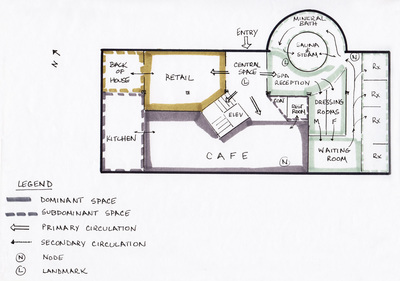 MINERAL
BATH
ENTRY
SAUNA
&
STEAM
N
BACK
OF
HOUSE
RETAIL
CENTRAL
SPACE
L
L
N
SPA
RECEPTION
RX
RX
RX
RX
DRESSING
ROOMS
M F
ROOM
ELEV
KITCHEN
CAFE
N
WAITING
ROOM
LEGEND
DOMINANT SPACE
SUBDOMINANT SPACE
PRIMARY CIRCULATION
SECONDARY CIRCULATION
N NODE
L LANDMARK